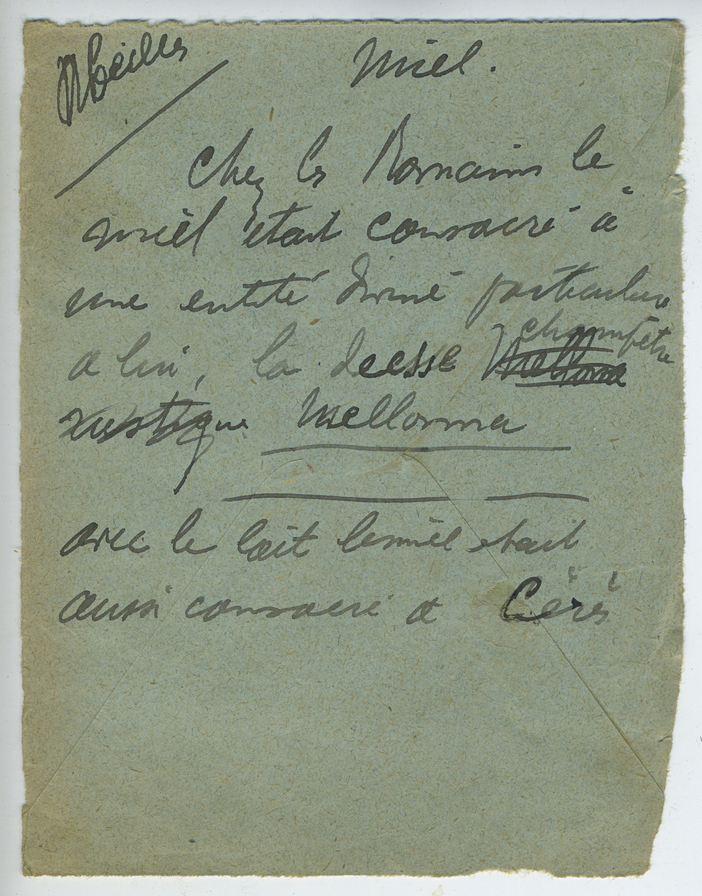 Abeilles
Miel.
Chez les Romains le
miel était consacré à
une entité divine particulière
a lui, la déesse champêtre
rustique Mellonna
avec le lait le miel etait
aussi consacré a Cérès